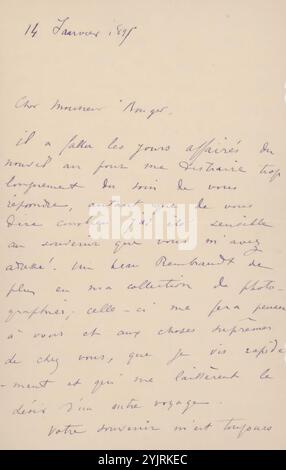 14 Janvier 1895
Cher Monsieur Rouger,
il a fallu les jours affairés du
nouvel an pour me distraire trop
longuement du soin de vous
répondre, autant que de vous
dire combien j'ai été sensible
au souvenir que vous m'avez
adressé. Un beau Rembrandt de
plus en ma collection de photo-
graphies; celle-ci me fera penser
à vous et aux choses suprêmes
de chez vous, que je vis rapide
-ment et qui me laissèrent le
désir d'un autre voyage.
Votre souvenir m'est toujours
alamy
Image ID: 2YJRKEC
www.alamy.com